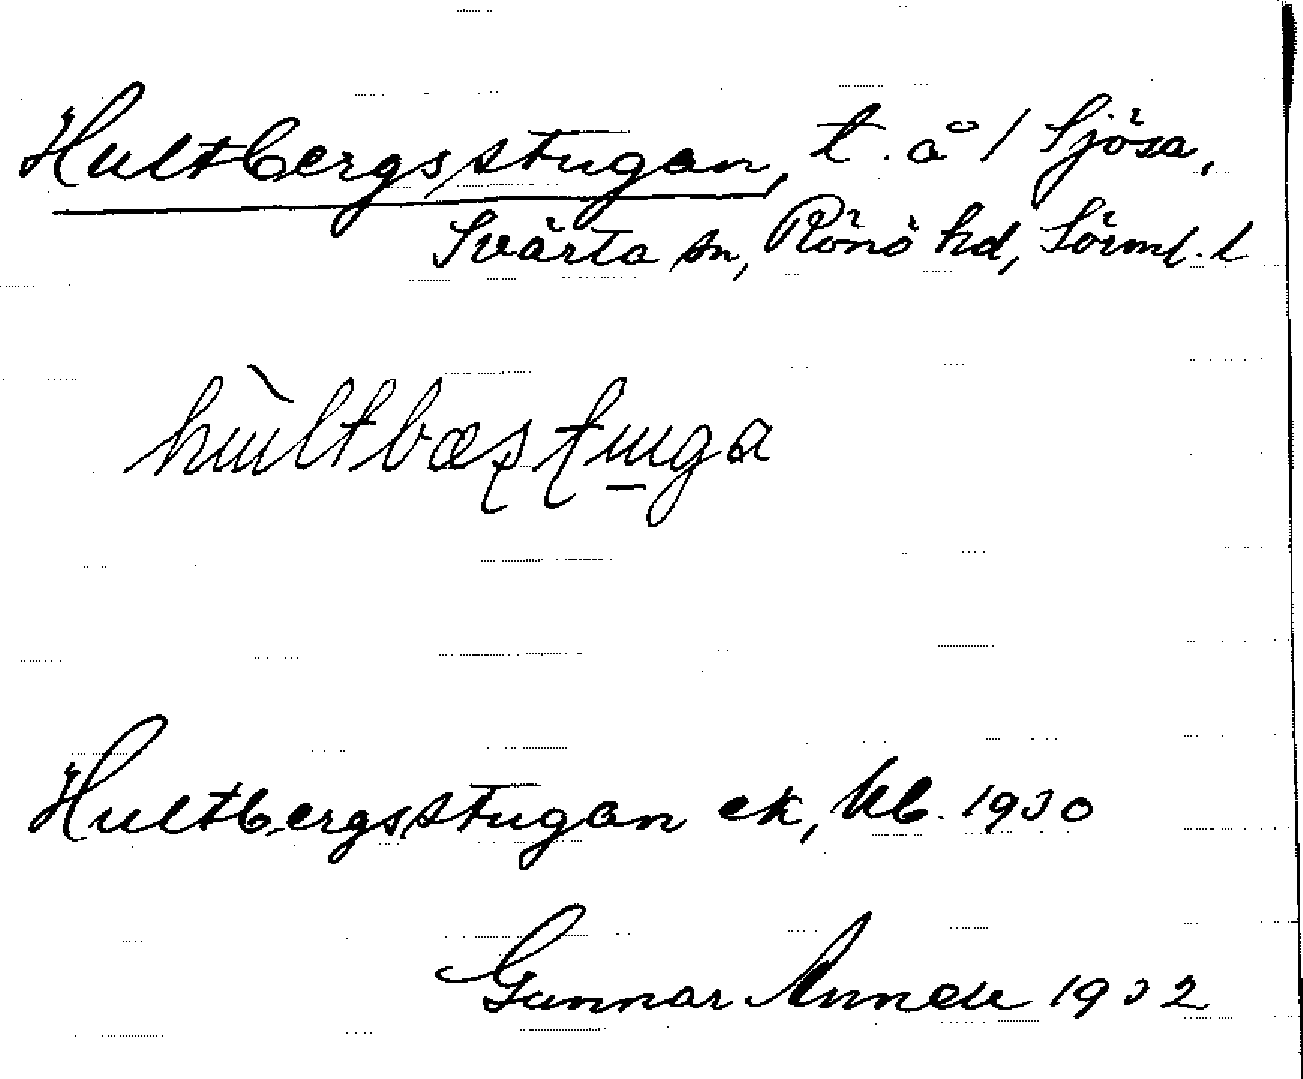 Hultbergsstugan, t. å / Sjösa,
Svärta sn, Rönö hd, Sörml. l
hùltbæʂʈuga
Hultbergsstugan ek, kb. 1930
Gunnar 1932